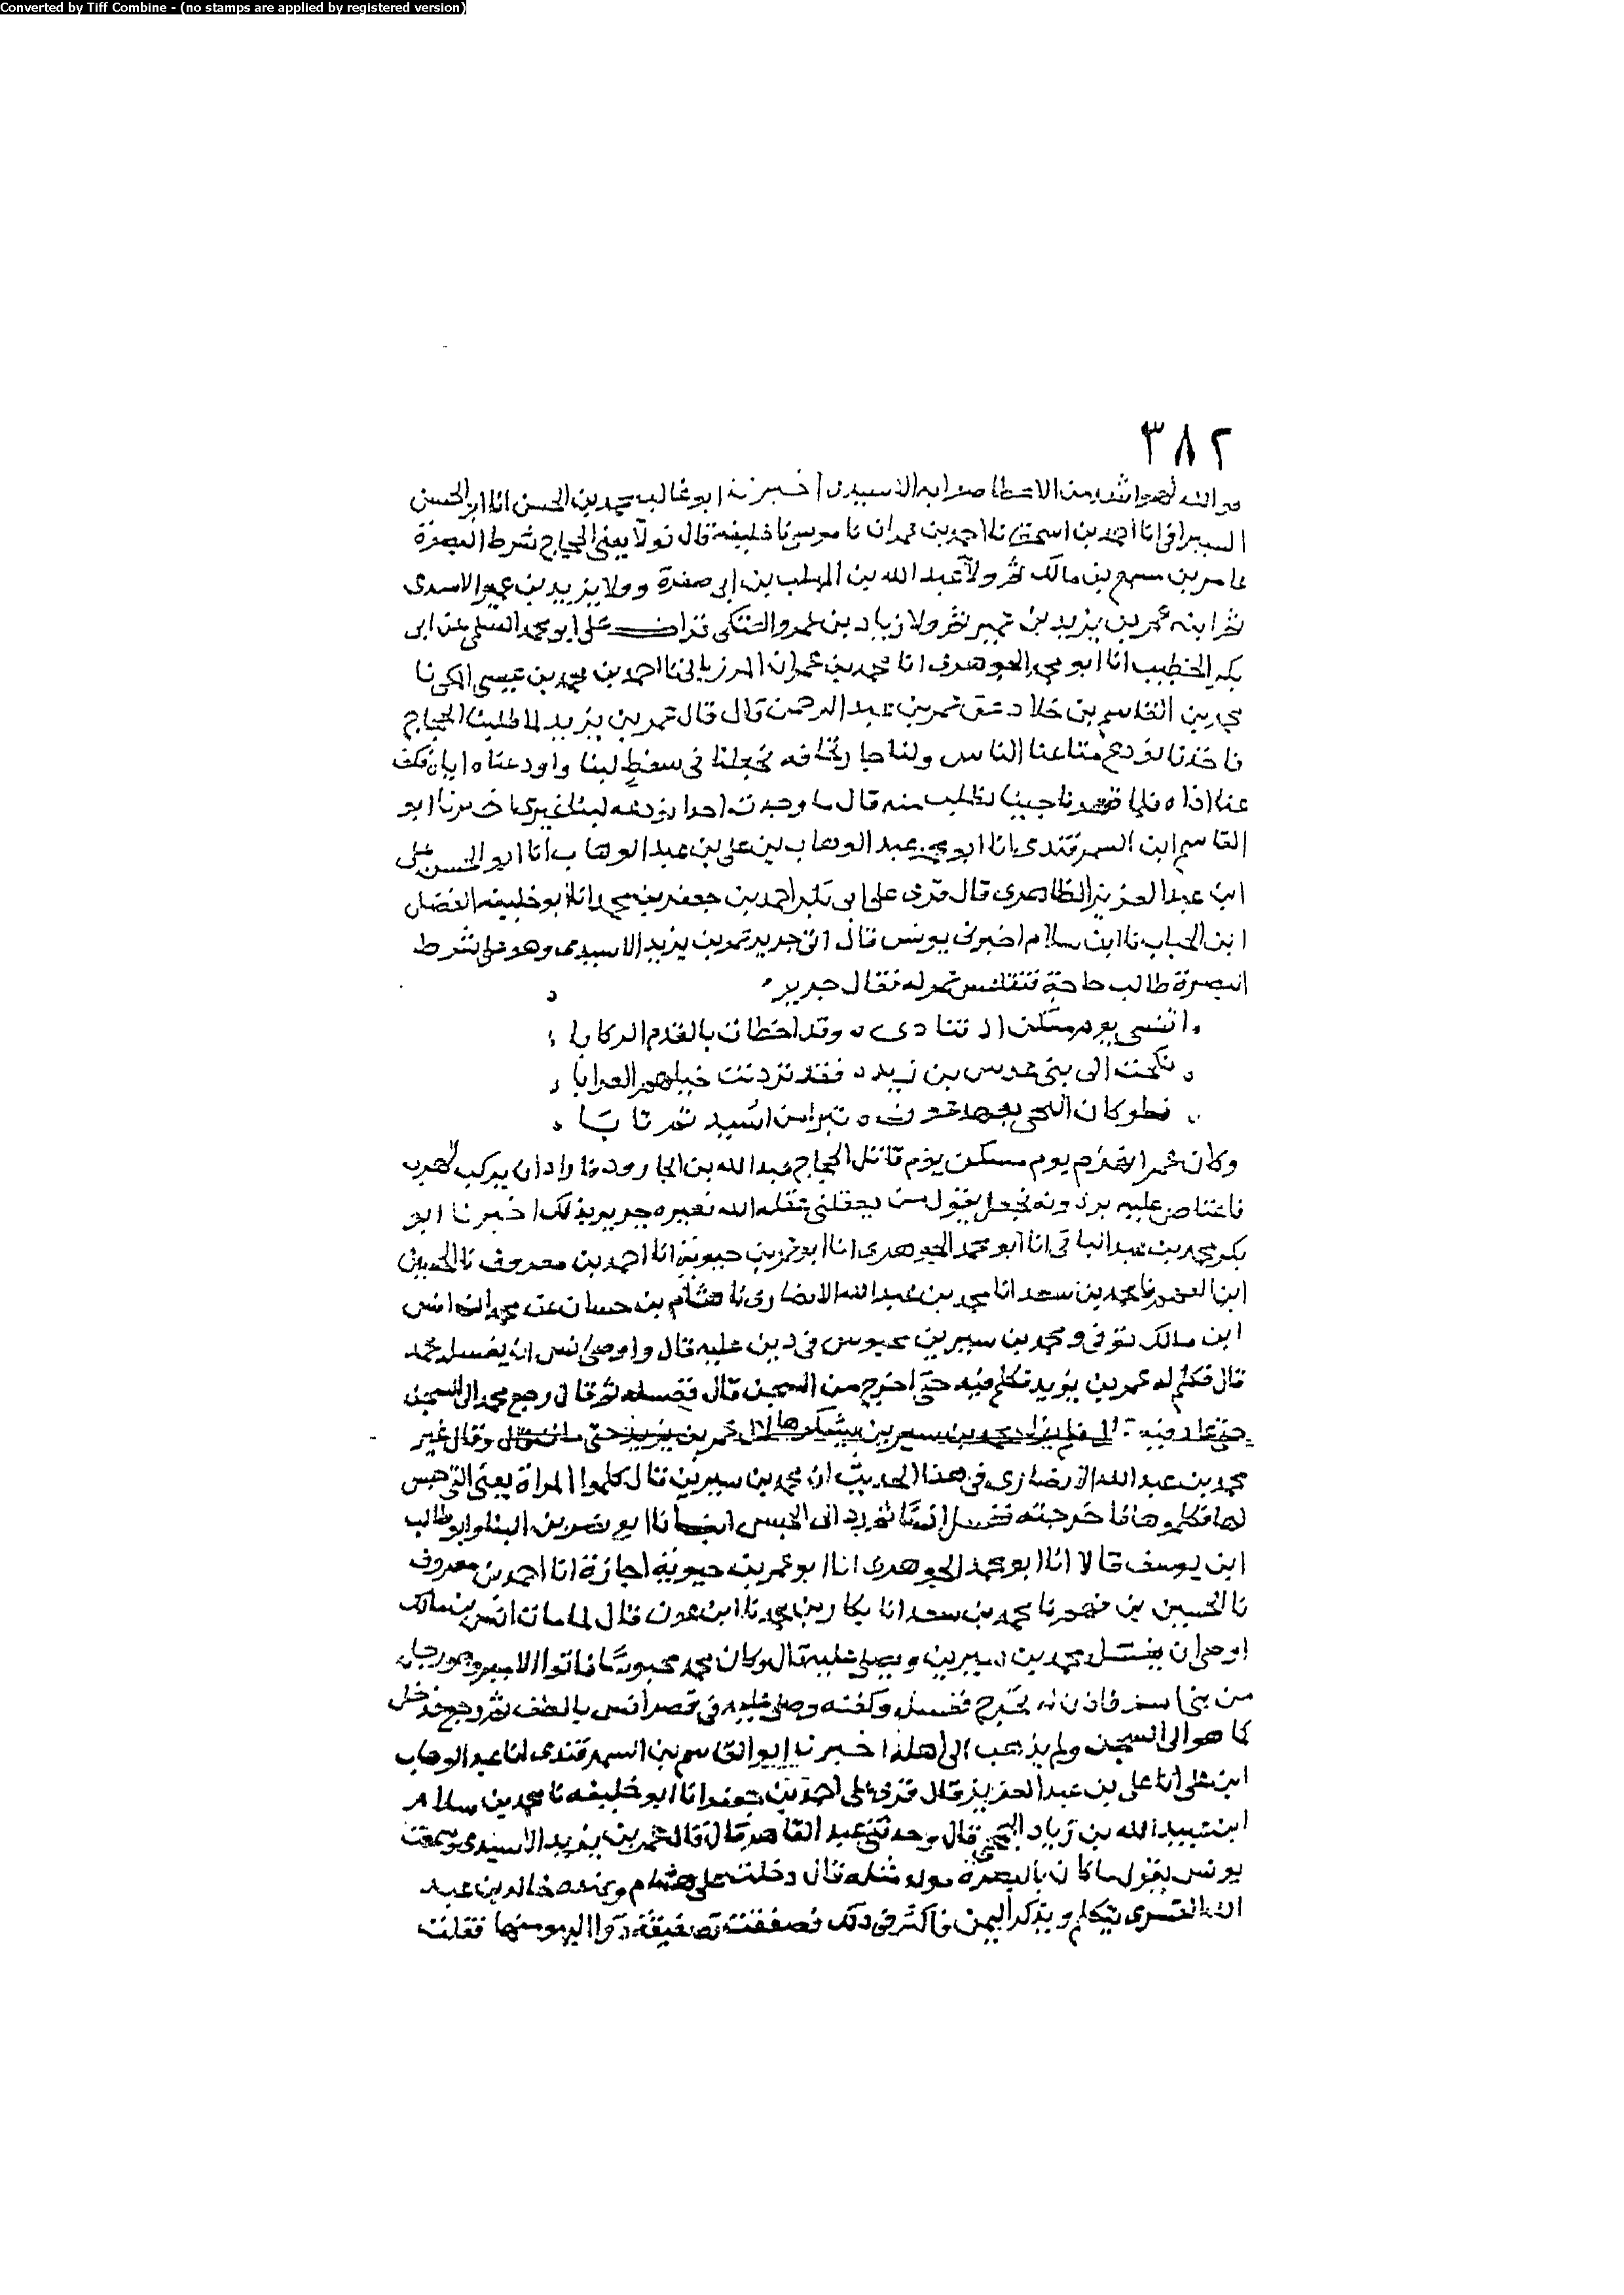 Converted by Tiff Combine - (no stamps are applied by registered version)
٣٨٢
والله لهو اشد من الاخطا صرابه الاسيدى اخبرنا ابو غالب محمد بن الحسن انا ابو الحسن
السيرافى انا احمد بن اسحق نا احمد بن عمران نا موسى نا خليفة قال تولا يعنى الحجاج شرط البصرة
عامر بن مسمع بن مالك ثم ولا عبد الله بن المهلب بن ابى صفرة وولا يزيد بن عمير الاسدى
ثم ابنه عمر بن يزيد بن عمير ثم ولا زياد بن عمرو العتكى قرات على ابو محمد السلمى عن ابى
بكر الخطيب انا ابو محمد الجوهرى انا محمد بن عمران المرزبانى نا احمد بن محمد بن عيسى المكى نا
محمد بن القاسم بن خلاد عن عمر بن عبد الرحمن قال قال عمر بن يزيد لما طلبنا الحجاج
فاخذنا نودع متاعنا الناس ولنا جار نخافه فجعلنا فى سفط لبنا واودعناه اياه فكف
عنا اذاه فلما فقدنا جينا نطلب منه قال ما وجدت احدا يودعه لبنا غيرى اخبرنا ابو
القاسم ابن السمرقندى انا ابو محمد عبد الوهاب بن على بن عبد الوهاب انا ابو الحسن على
ابن عبد العزيز الطاهرى قال قرى على ابى بكر احمد بن جعفر بن محمد انا ابو خليفة الفضل
ابن الحباب نا ابن سلام اخبرنى يونس قال اتى جرير عمر بن يزيد الاسيدى وهو على شرط
البصرة طالب حاجة فتقاعس عمر له فقال جرير
اتنسى يوم مسكن اذ تنادى وقد اخطات بالقدم الركابا
نكحت الى بنى عدس بن زيد فقد بردنت خيلهم العرابا
فلو كان النجى بعهد عوف تبرا من اسيد ثم تابا
وكان عمر انهزم يوم مسكن يوم قاتل الحجاج عبد الله بن الجارود فاراد ان يركب لهرب
فاعتاص عليه برذونه فجعل يقول من يعقلنى عقله الله فعيره جرير بذلك اخبرنا ابو
بكر محمد بن عبد الباقى انا ابو محمد الجوهرى انا ابو عمر بن حيوية انا احمد بن معروف نا الحسين
ابن الفهم نا محمد بن سعد انا محمد بن عبد الله الانصارى نا هشام بن حسان عن محمد ان انس
ابن مالك توفى ومحمد بن سيرين محبوس فى دين عليه قال واوصى انس ان يغسله محمد
قال فكلم له عمر بن يزيد تكلم فيه حتى اخرج من السجن قال فغسله ثم قال رجع محمد الى السجن
حتى عاد فيه قال فلم يزل محمد بن سيرين يشكرها لال عمر بن يزيد حتى مات قال وقال غير
محمد بن عبد الله الانصارى فى هذا الحديث ان محمد بن سيرين قال كلموا المراة يعنى التى حبس
لها فكلموها فاخرجته فغسل انسا ثم رد الى الحبس ايضا نا ابو نصر بن البنا وابو طالب
ابن يوسف قالا انا ابو محمد الجوهرى انا ابو عمر بن حيوية اجازة انا احمد بن معروف
نا الحسين بن فهم نا محمد بن سعد انا بكار بن محمد نا ابن عون قال لما مات انس بن مالك
اوصى ان يغسله محمد بن سيرين ويصلى عليه قال وكان محمد محبوسا فاتوا الامير وهو رجل
من بنى اسد فاذن له فخرج فغسله وكفنه وصلى عليه فى قصر انس بالطف ثم رجع فدخل
كما هو الى السجن ولم يذهب الى اهله اخبرنا ابو القاسم بن السمرقندى انا عبد الوهاب
ابن على انا على بن عبد العزيز قال قرى على احمد بن جعفر انا ابو خليفة نا محمد بن سلام
ابن عبيد الله بن زياد الجمحى قال وحدثنى عبد القاهر قال قال عمر بن يزيد الاسيدى وسمعت
يونس يقول ما كان بالبصرة مولد مثله قال دخلت على هشام وعنده خالد بن عبد
الله القسرى يتكلم ويذكر اليمن فاكثر فى ذلك فصفقت تصفيقة دوا البهو منها فقلت